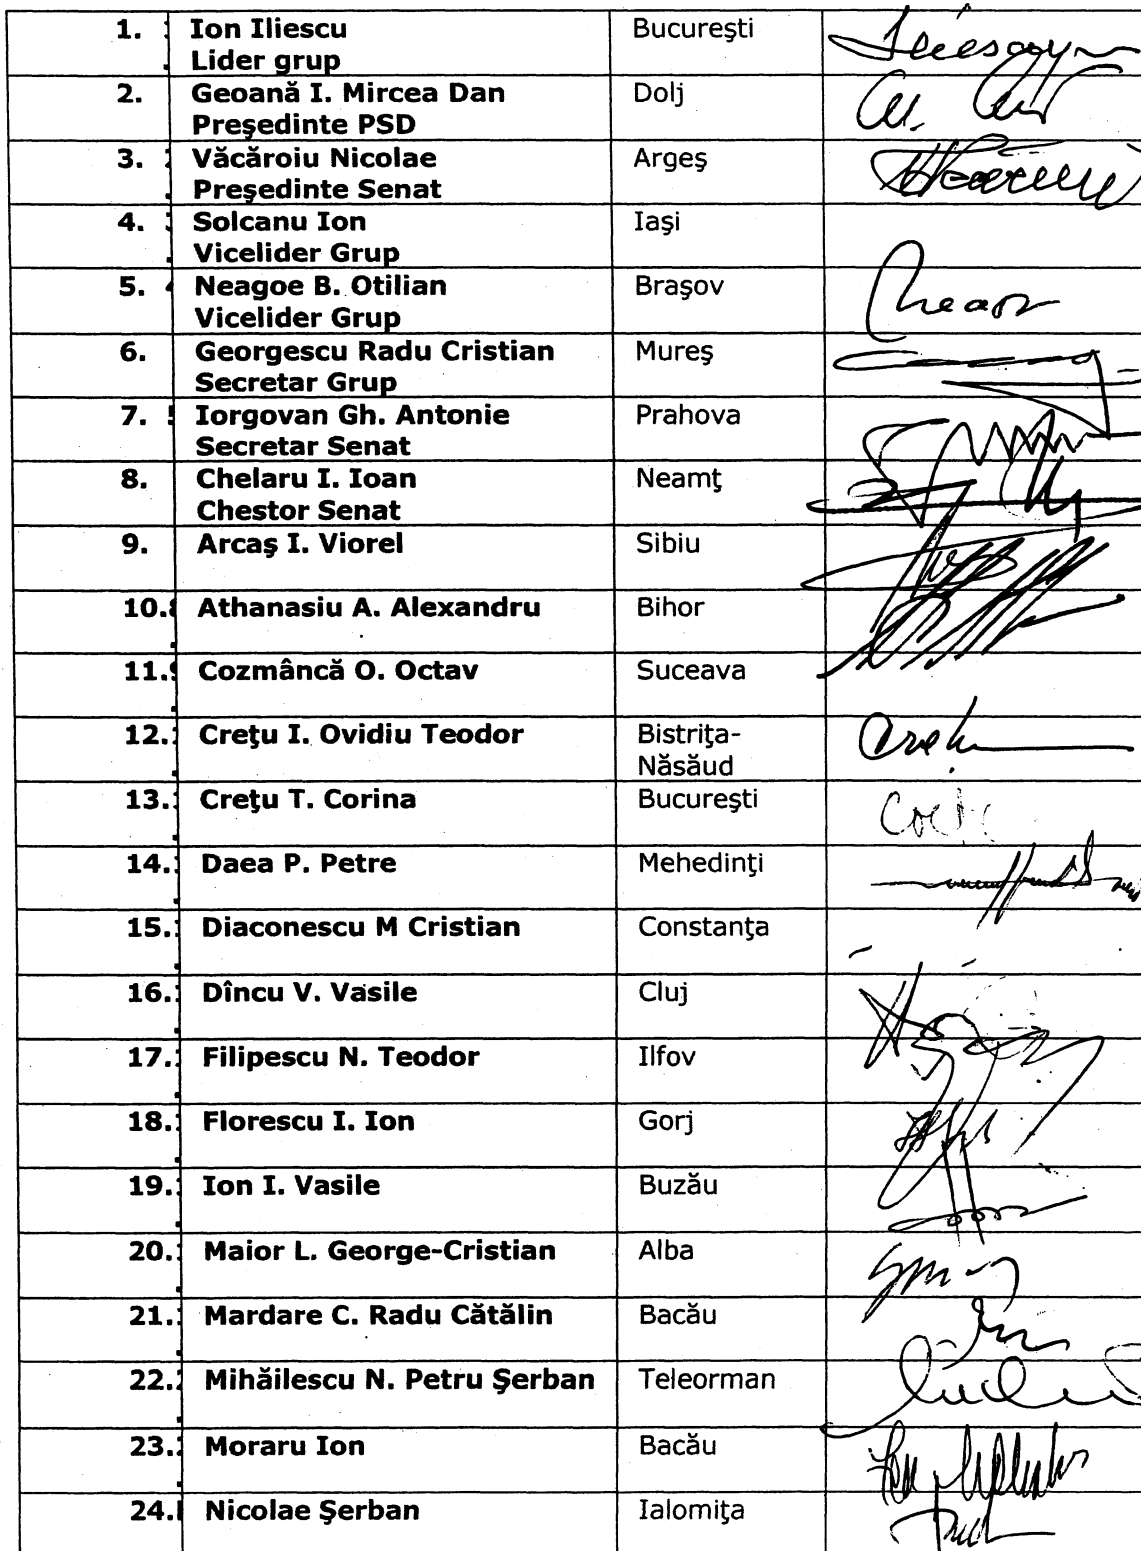 1. Ion Iliescu Bucureşti
Lider grup
2. Geoană I. Mircea Dan Dolj
Preşedinte PSD
3. Văcăroiu Nicolae Argeş
Preşedinte Senat
4. Solcanu Ion Iaşi
Vicelider Grup
5. Neagoe B. Otilian Braşov
Vicelider Grup
6. Georgescu Radu Cristian Mureş
Secretar Grup
7. Iorgovan Gh. Antonie Prahova
Secretar Senat
8. Chelaru I. Ioan Neamţ
Chestor Senat
9. Arcaş I. Viorel Sibiu
10. Athanasiu A. Alexandru Bihor
11. Cozmâncă O. Octav Suceava
12. Creţu I. Ovidiu Teodor Bistriţa-
Năsăud
13. Creţu T. Corina Bucureşti
14. Daea P. Petre Mehedinţi
15. Diaconescu M Cristian Constanţa
16. Dîncu V. Vasile Cluj
17. Filipescu N. Teodor Ilfov
18. Florescu I. Ion Gorj
19. Ion I. Vasile Buzău
20. Maior L. George-Cristian Alba
21. Mardare C. Radu Cătălin Bacău
22. Mihăilescu N. Petru Şerban Teleorman
23. Moraru Ion Bacău
24. Nicolae Şerban Ialomiţa